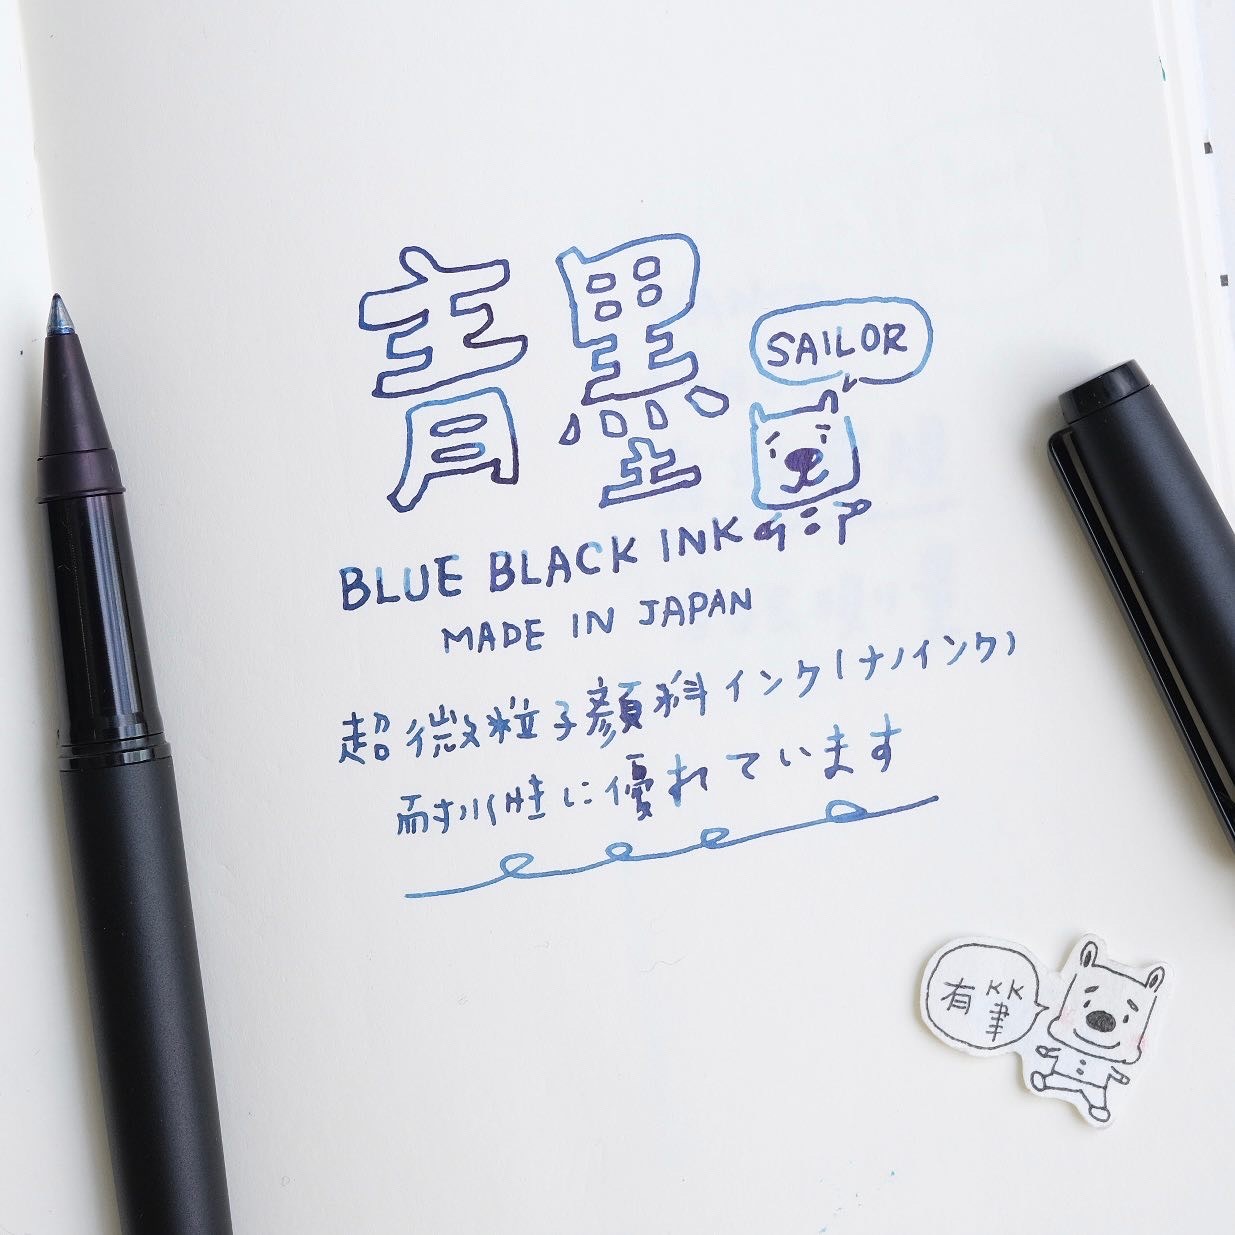 青墨
SAILOR
BLUE BLACK INK
MADE IN JAPAN
超微粒子顔料インク(ナノインク)
耐水性に優れています
有筆